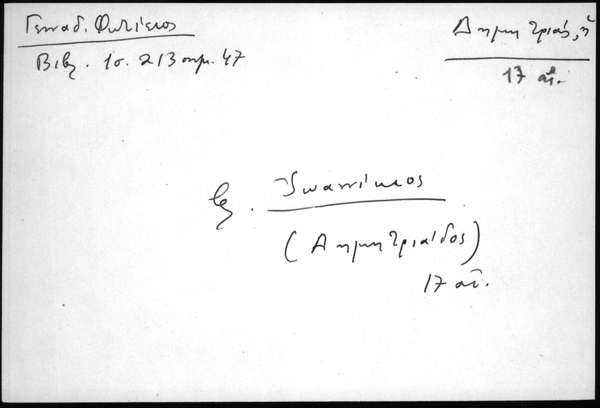 Γενναδ. Φωτίειος
Βιβ. 1σ. 213 σημ. 47
Δημητριάς, ἡ
17 αἰ.
Ἰωαννίκιος
(Δημητριαίδος)
17 αἰ.